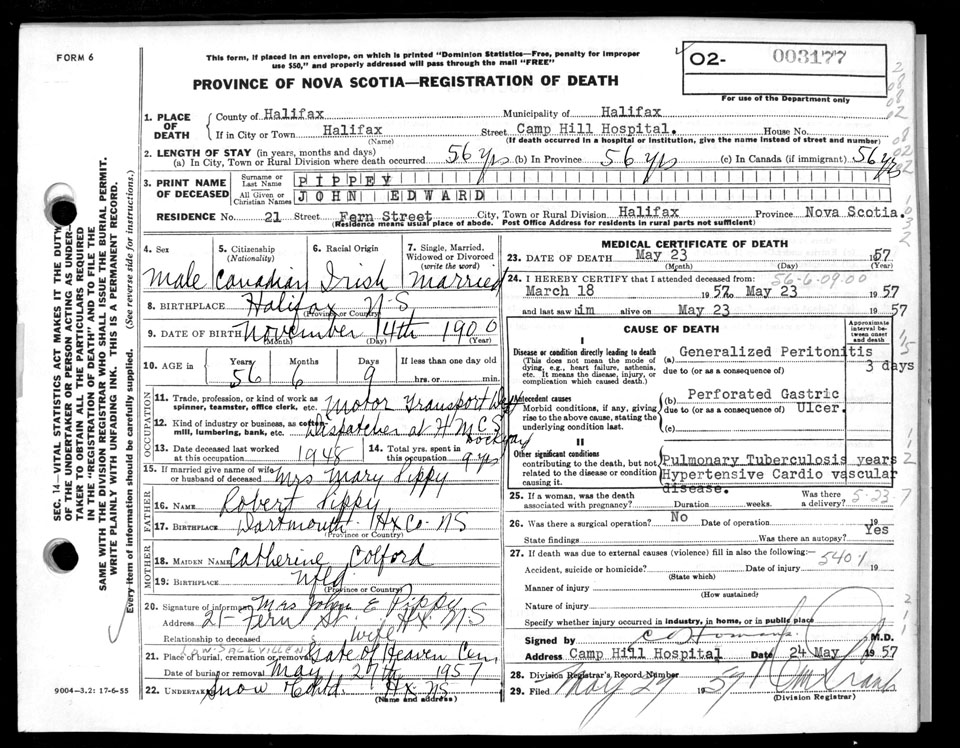 FORM 6
This form, if placed in an envelope, on which is printed "Dominion Statistics—Free, penalty for improper
use $50," and properly addressed will pass through the mail "FREE"
PROVINCE OF NOVA SCOTIA—REGISTRATION OF DEATH
02- 003177
For use of the Department only
1. PLACE OF DEATH
County of Halifax Municipality of Halifax
If in City or Town Halifax Street Camp Hill Hospital. House No.
(Name) (If death occurred in a hospital or institution, give the name instead of street and number)
2. LENGTH OF STAY (in years, months and days)
(a) In City, Town or Rural Division where death occurred 56 yrs (b) In Province 56 yrs (c) In Canada (if immigrant) 56 yrs
3. PRINT NAME OF DECEASED
Surname or Last Name PIPPEY
All Given or Christian Names JOHN EDWARD
RESIDENCE No. 21 Street Fern Street City, Town or Rural Division Halifax Province Nova Scotia.
(Residence means usual place of abode. Post Office Address for residents in rural parts not sufficient)
4. Sex 5. Citizenship (Nationality) 6. Racial Origin 7. Single, Married, Widowed or Divorced (write the word)
Male Canadian Irish Married
8. BIRTHPLACE Halifax N-S
(Province or Country)
9. DATE OF BIRTH November 14th 1900
(Month) (Day) (Year)
10. AGE in Years Months Days If less than one day old
56 6 9 hrs. or min.
OCCUPATION
11. Trade, profession, or kind of work as spinner, teamster, office clerk, etc. Motor Transport
12. Kind of industry or business, as cotton mill, lumbering, bank, etc. Dispatcher at HMCS Dockyard
13. Date deceased last worked at this occupation 1948 14. Total yrs. spent in this occupation 9 yrs
15. If married give name of wife or husband of deceased Mrs Mary Pippy
FATHER
16. NAME Robert Pippy
17. BIRTHPLACE Dartmouth Hx Co. NS
(Province or Country)
MOTHER
18. MAIDEN NAME Catherine Colford
19. BIRTHPLACE Nfld
(Province or Country)
20. Signature of informant Mrs John E Pippy
Address 21- Fern St. Hx. NS
Relationship to deceased wife
LOW. SACKVILLE NS
21. Place of burial, cremation or removal Gate of Heaven Cem
Date of burial or removal May 27th 1957
22. Undertaker Snow & Co Ltd. Hx. NS
(Name and address)
9004-3.2: 17-6-55
MEDICAL CERTIFICATE OF DEATH
23. DATE OF DEATH May 23 1957
(Month) (Day) (Year)
56-6-09.00
24. I HEREBY CERTIFY that I attended deceased from:
March 18 1957 to May 23 1957
and last saw him alive on May 23 1957
CAUSE OF DEATH
Approximate interval between onset and death
I
Disease or condition directly leading to death
(This does not mean the mode of dying, e.g., heart failure, asthenia, etc. It means the disease, injury, or complication which caused death.)
(a) Generalized Peritonitis 3 days
due to (or as a consequence of)
Antecedent causes
Morbid conditions, if any, giving rise to the above cause, stating the underlying condition last.
(b) Perforated Gastric
due to (or as a consequence of) Ulcer.
(c)
II
Other significant conditions
contributing to the death, but not related to the disease or condition causing it.
Pulmonary Tuberculosis years
Hypertensive Cardio vascular
disease.
25. If a woman, was the death associated with pregnancy? Duration weeks. Was there a delivery?
5-23-7
26. Was there a surgical operation? No Date of operation 19
State findings Was there an autopsy? Yes
27. If death was due to external causes (violence) fill in also the following:—
540.1
Accident, suicide or homicide? Date of injury 19
(State which)
Manner of injury
(How sustained)
Nature of injury
Specify whether injury occurred in industry, in home, or in public place
Signed by M.D.
Address Camp Hill Hospital Date 24 May 1957
28. Division Registrar's Record Number
29. Filed May 27 1957
(Division Registrar)
SEC. 14—VITAL STATISTICS ACT MAKES IT THE DUTY
OF THE UNDERTAKER OR PERSON ACTING AS UNDER-
TAKER TO OBTAIN ALL THE PARTICULARS REQUIRED
IN THE "REGISTRATION OF DEATH" AND TO FILE THE
SAME WITH THE DIVISION REGISTRAR WHO SHALL ISSUE THE BURIAL PERMIT.
WRITE PLAINLY WITH UNFADING INK. THIS IS A PERMANENT RECORD.
Every item of information should be carefully supplied. (See reverse side for instructions.)